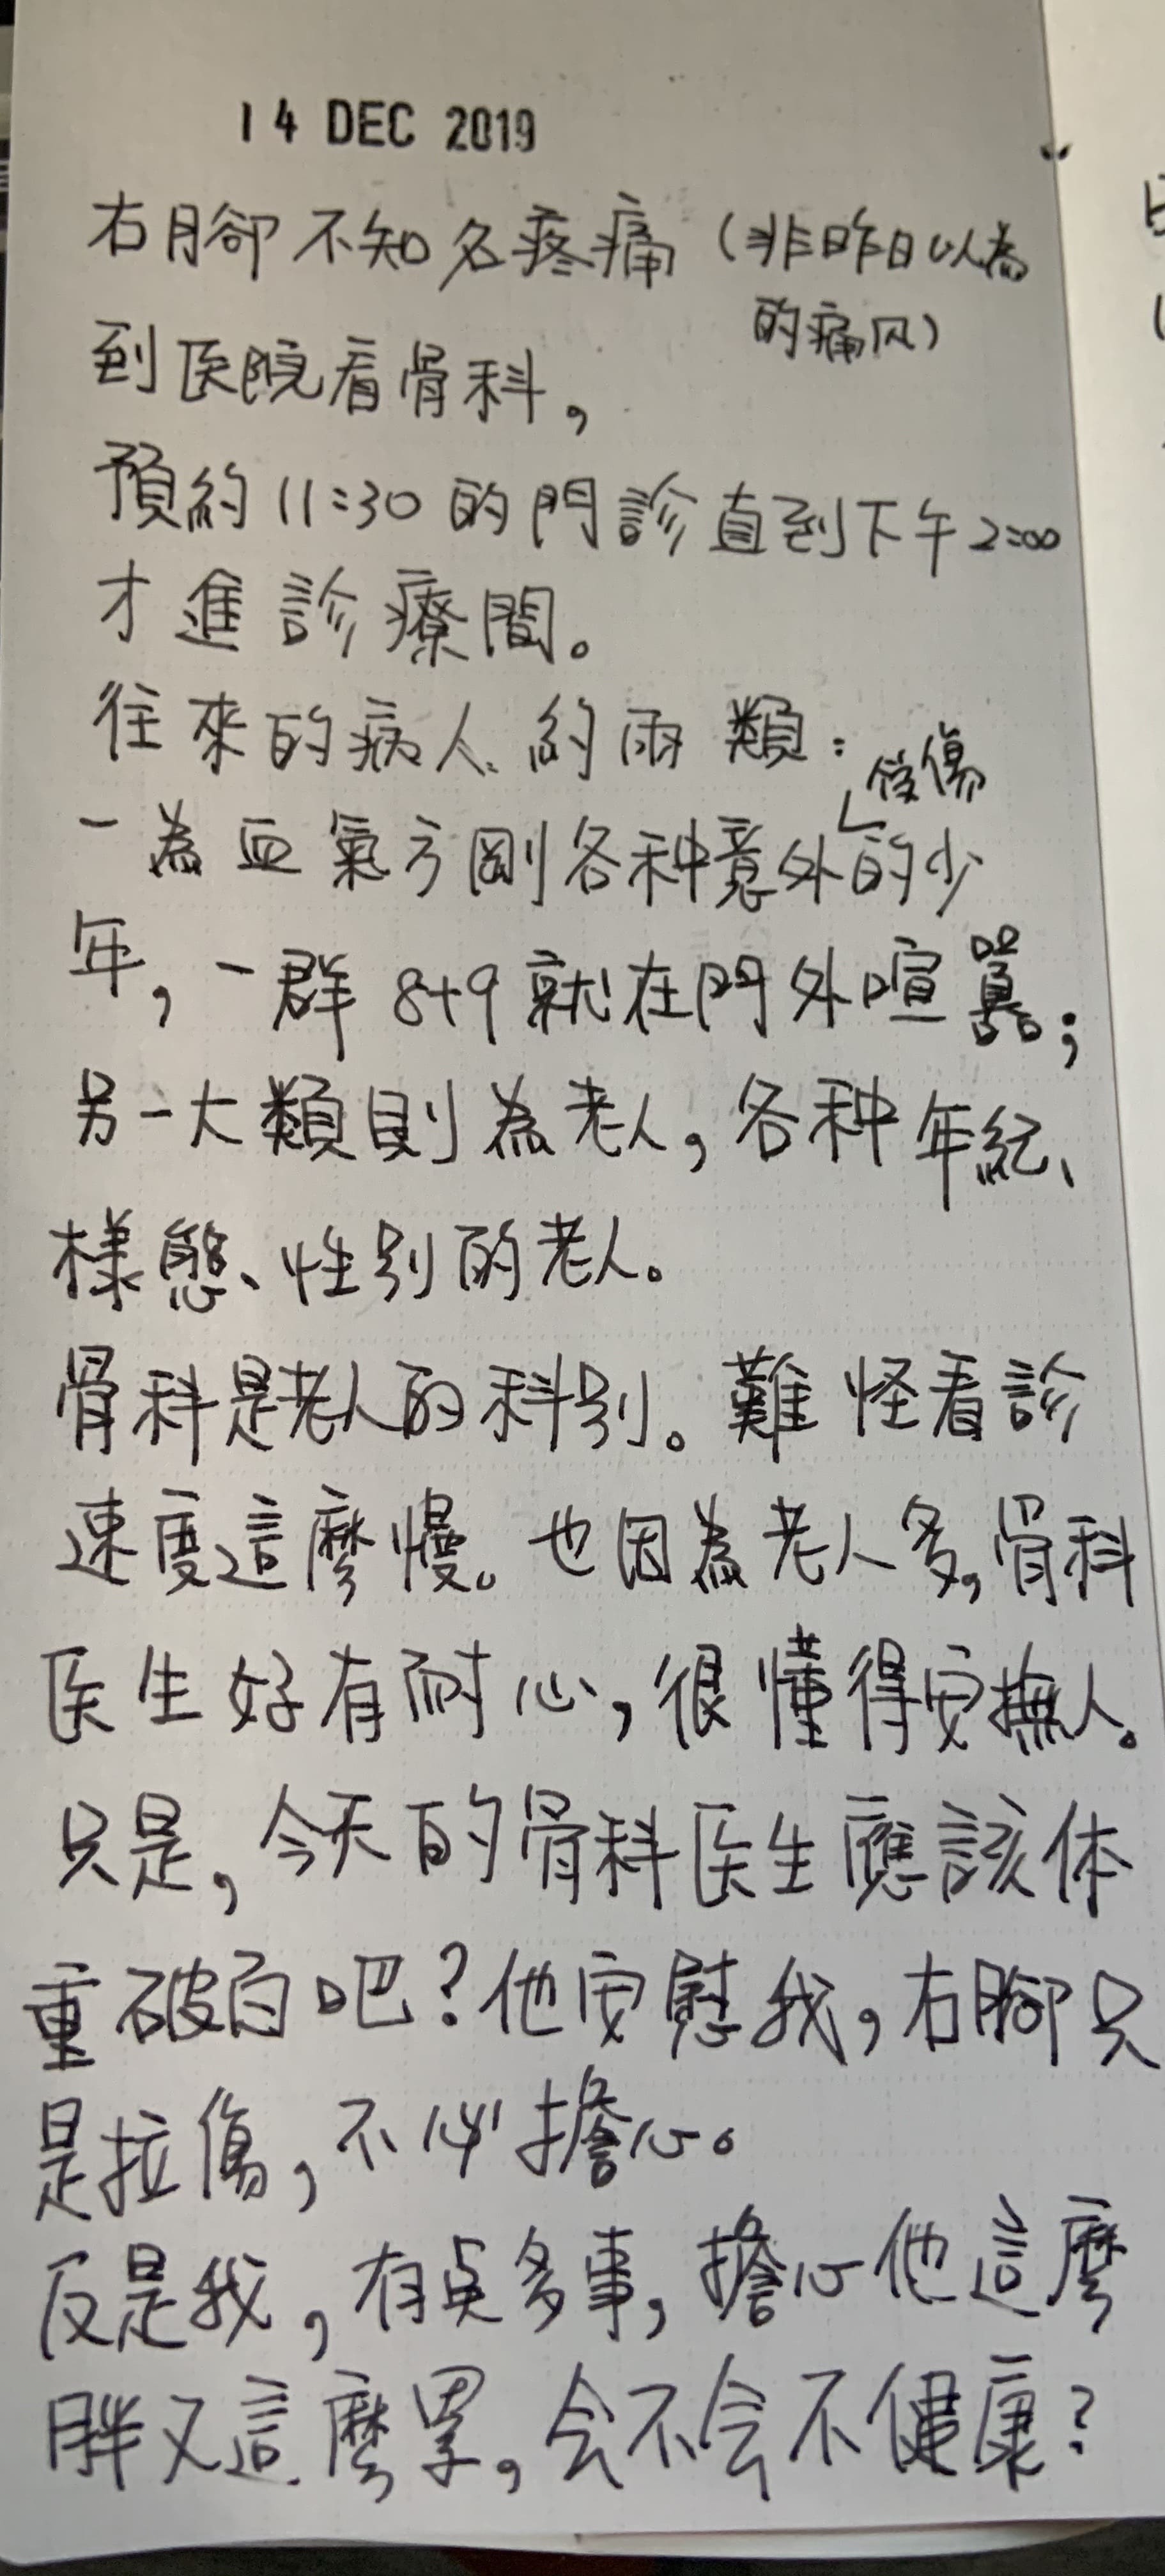 14 DEC 2019
右腳不知名疼痛（非昨日以為
的痛风）
到医院看骨科，
預約11:30的門診直到下午2:00
才進診療間。
往來的病人、約兩類：
受傷
一為血氣方剛各种意外的少
年，一群8+9就在門外喧囂；
另一大類則為老人，各种年紀、
樣態、性別的老人。
骨科是老人的科別。難怪看診
速度這麼慢。也因為老人多，骨科
医生好有耐心，很懂得安撫人。
只是，今天的骨科医生應該体
重破百吧？他安慰我，右腳只
是拉傷，不必擔心。
反是我，有点多事，擔心他這麼
胖又這麼累，会不会不健康？